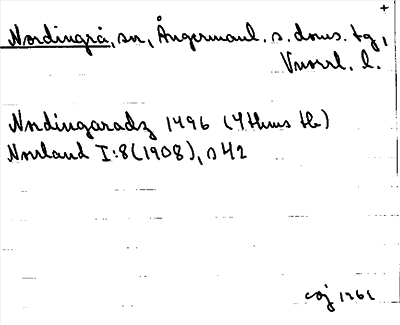 +
Nordingrå, sn, Ångermanl. s. doms. tg,
Vnorrl. l.
Nordingaradz 1496 (Ythms tb)
Norrland I:8 (1908), s 42
1961